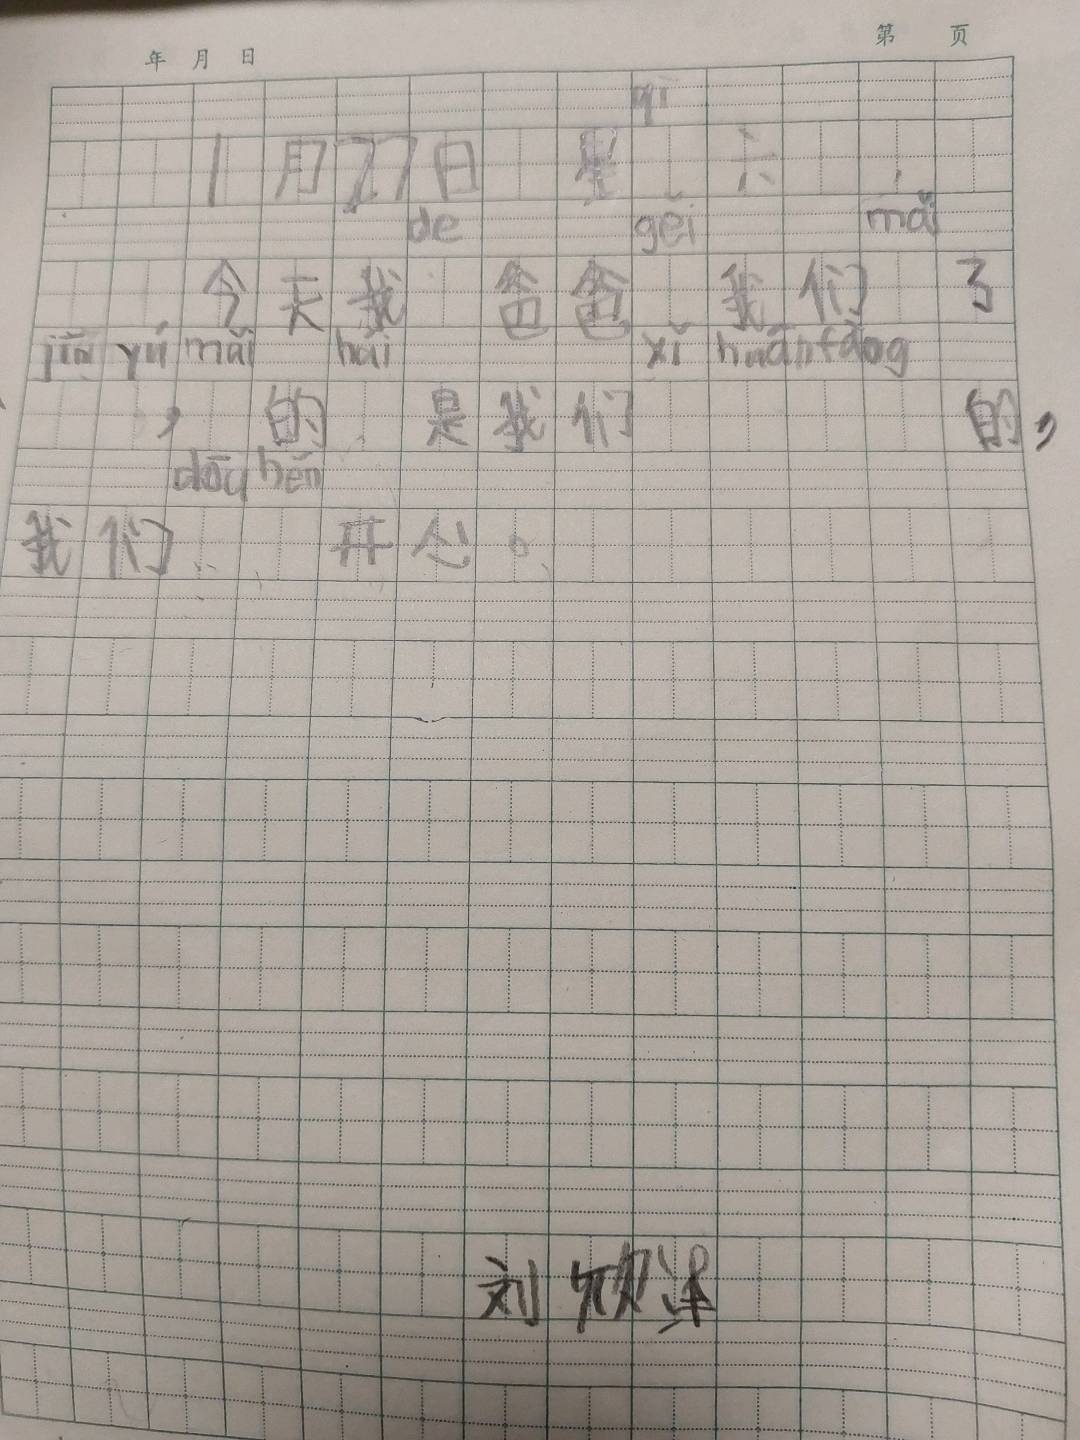 年 月 日 第 页
qī
1月27日 星 六
de gěi mǎi
今天我 爸爸 我们 了
jīn yú mǎi hái xǐ huān fàng
， 的 是我们 的，
dōu hěn
我们 开心。
刘欣泽